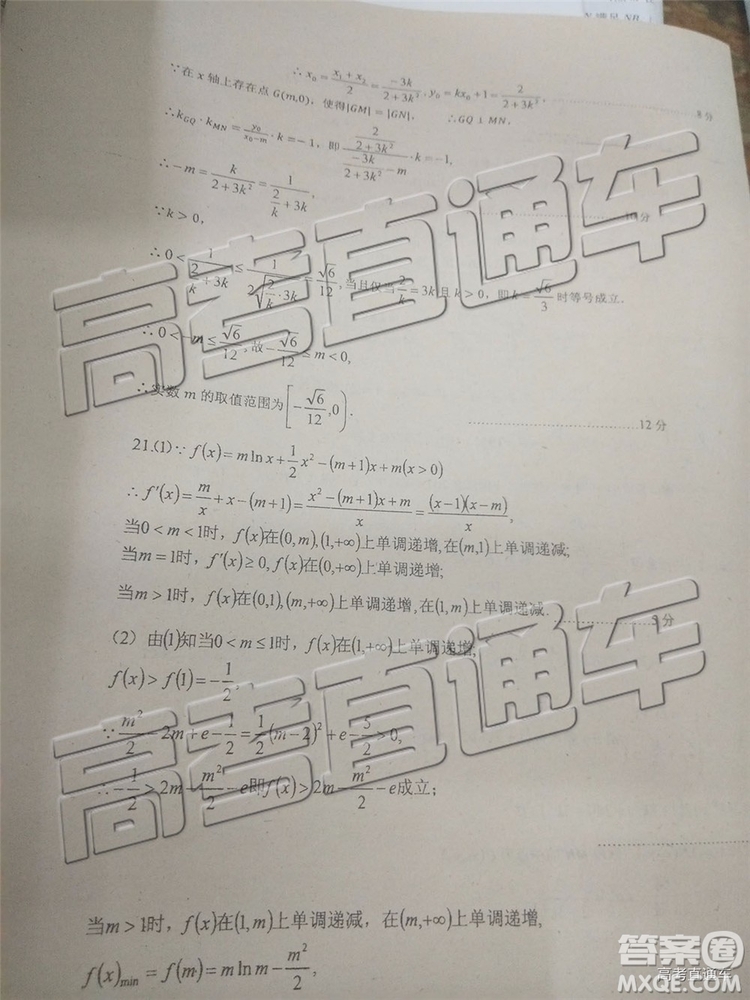 N 满足 NB
∴ x₀ = (x₁ + x₂)/2 = -3k/(2 + 3k²), y₀ = kx₀ + 1 = 2/(2 + 3k²), ……8分
∵在 x 轴上存在点 G(m,0), 使得|GM| = |GN|, ∴GQ ⊥ MN,
∴k_GQ · k_MN = y₀/(x₀−m) · k = −1, 即 (2/(2 + 3k²))/(−3k/(2 + 3k²) − m) · k = −1,
∴−m = k/(2 + 3k²) = 1/(2/k + 3k),
∵k > 0, ……10分
∴0 < 1/(2/k + 3k) ≤ 1/(2√(2/k · 3k)) = √6/12, 当且仅当 2/k = 3k 且 k > 0, 即 k = √6/3 时等号成立.
∴0 < −m ≤ √6/12, 故 −√6/12 ≤ m < 0,
∴实数 m 的取值范围为 [−√6/12, 0). ……12分
21.(1)∵ f(x) = m ln x + 1/2 x² − (m+1)x + m(x > 0)
∴ f′(x) = m/x + x − (m+1) = (x² − (m+1)x + m)/x = (x−1)(x−m)/x,
当0 < m < 1时, f(x)在(0,m),(1,+∞)上单调递增,在(m,1)上单调递减;
当m = 1时, f′(x) ≥ 0, f(x)在(0,+∞)上单调递增;
当m > 1时, f(x)在(0,1),(m,+∞)上单调递增,在(1,m)上单调递减. ……5分
(2) 由(1)知当0 < m ≤ 1时, f(x)在(1,+∞)上单调递增,
f(x) > f(1) = −1/2,
∵ m²/2 − 2m + e − 1/2 = 1/2(m−2)² + e − 5/2 > 0,
∴ −1/2 > 2m − m²/2 − e即f(x) > 2m − m²/2 − e成立;
当m > 1时, f(x)在(1,m)上单调递减, 在(m,+∞)上单调递增,
f(x)min = f(m) = m ln m − m²/2,
高考直通车
高考直通车
答案圈
高考直通车
MXQE.COM